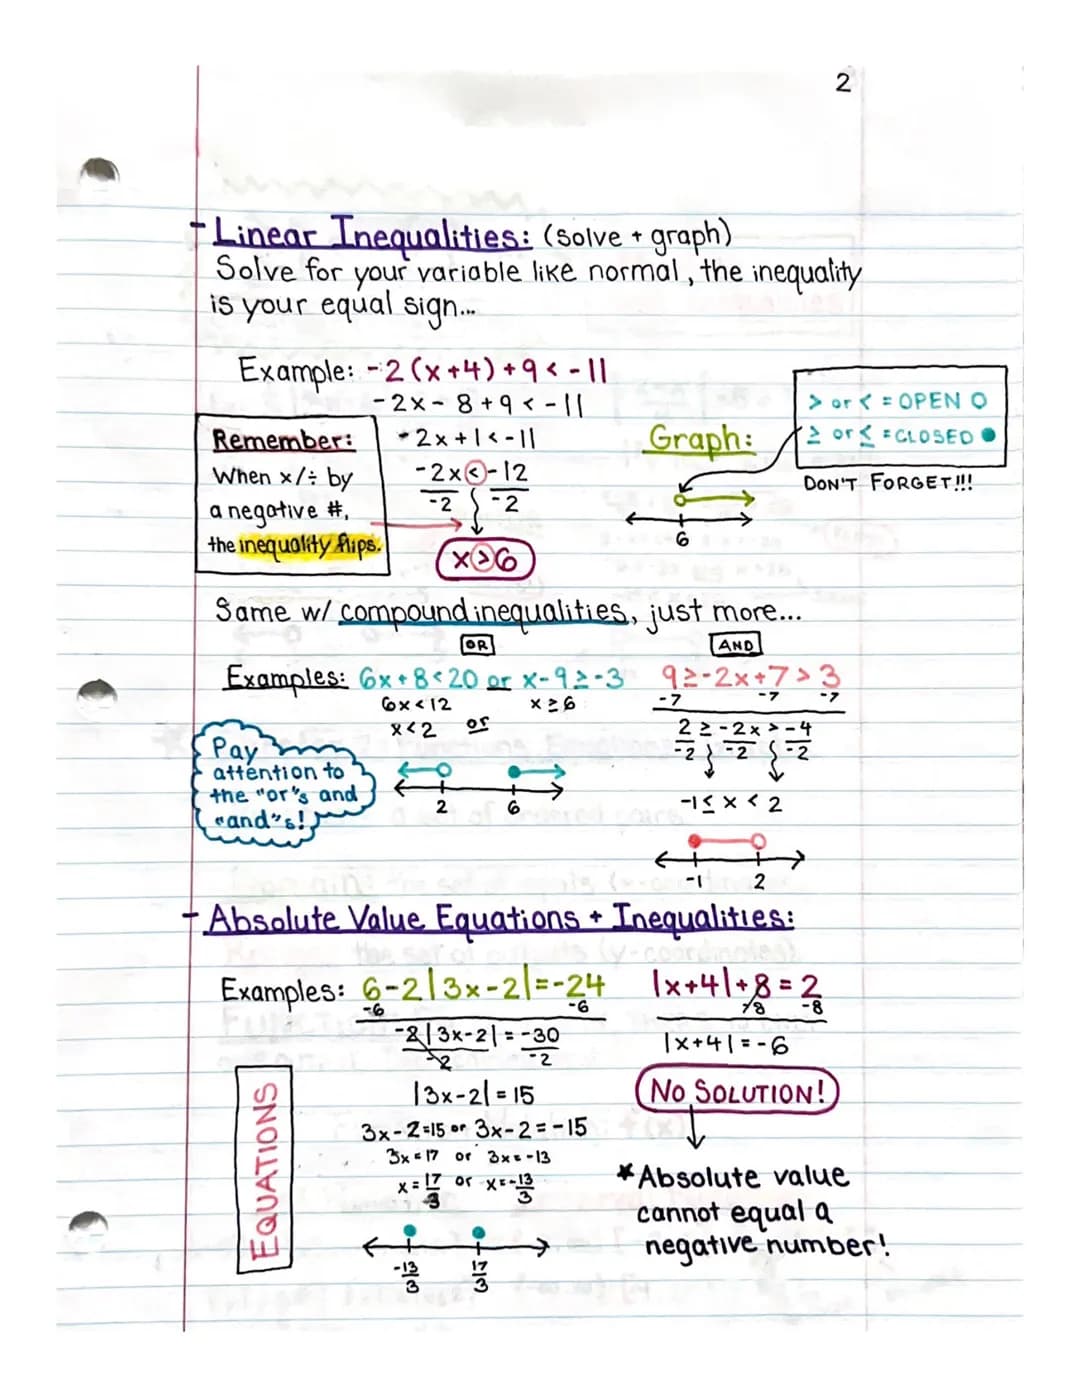 2
- Linear Inequalities: (solve + graph)
Solve for your variable like normal, the inequality
is your equal sign...
Example: -2(x+4)+9 < -11
-2x - 8 + 9 < -11
-2x + 1 < -11
-2x < -12
-2 -2
x > 6
Remember:
When x/÷ by
a negative #,
the inequality flips.
Graph:
6
> or < = OPEN ○
≥ or ≤ = CLOSED ●
DON'T FORGET!!!
Same w/ compound inequalities, just more...
OR
AND
Examples: 6x+8<20 or x-9≥-3
6x<12 x≥6
x<2 or
2 6
9≥-2x+7>3
-7 -7 -7
2≥-2x>-4
-2 -2 -2
-1≤x<2
-1 2
Pay
attention to
the "or"s and
"and"s!
- Absolute Value Equations + Inequalities:
Examples: 6-2|3x-2|=-24
-6 -6
-2|3x-2|=-30
-2 -2
|3x-2|=15
3x-2=15 or 3x-2=-15
3x=17 or 3x=-13
x=17/3 or x=-13/3
-13/3 17/3
EQUATIONS
|x+4|+8=2
-8 -8
|x+4|=-6
NO SOLUTION!
*Absolute value
cannot equal a
negative number!